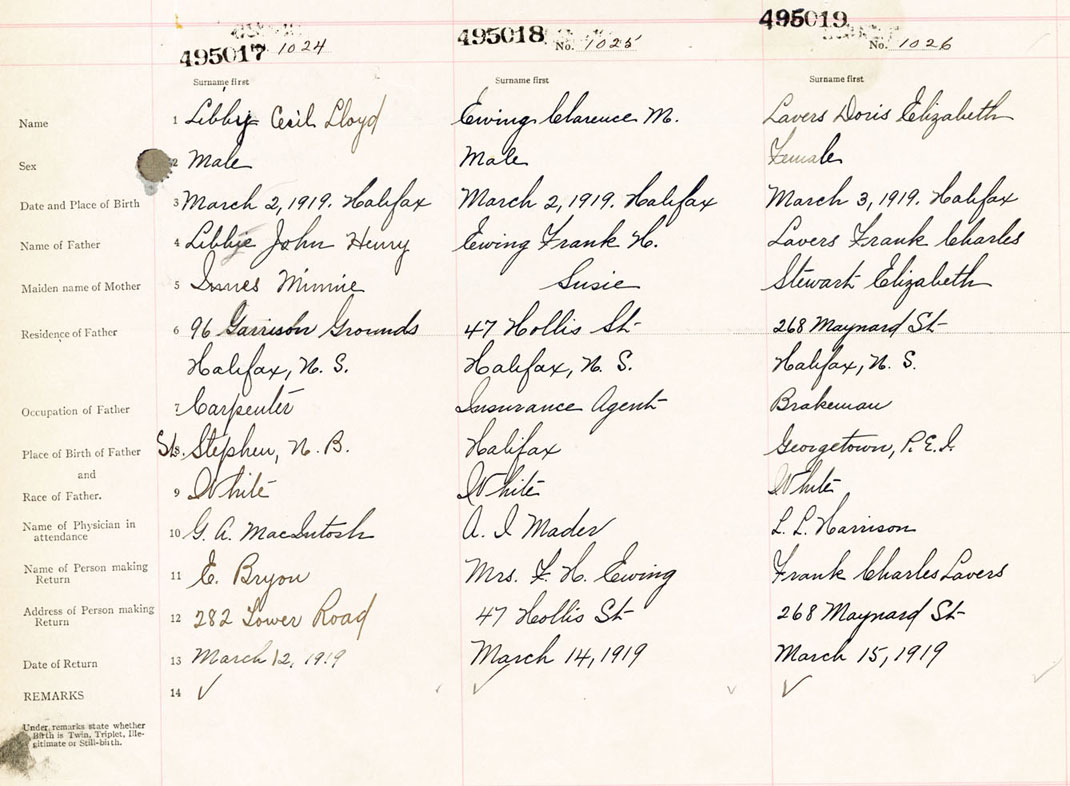 495017 1024 495018 No. 1025 495019 No. 1026
Surname first Surname first Surname first
Name 1 Libbie Cecil Lloyd Ewing Clarence M. Lavers Doris Elizabeth
Sex 2 Male Male Female
Date and Place of Birth 3 March 2, 1919. Halifax March 2, 1919. Halifax March 3, 1919. Halifax
Name of Father 4 Libbie John Henry Ewing Frank H. Lavers Frank Charles
Maiden name of Mother 5 Innes Minnie Susie Stewart Elizabeth
Residence of Father 6 96 Garrison Grounds 47 Hollis St 268 Maynard St
Halifax, N. S. Halifax, N. S. Halifax, N. S.
Occupation of Father 7 Carpenter Insurance Agent Brakeman
Place of Birth of Father 8 St. Stephen, N. B. Halifax Georgetown, P.E.I.
and
Race of Father. 9 White White White
Name of Physician in
attendance 10 G. A. MacIntosh A. I Mader L. L. Harrison
Name of Person making
Return 11 E. Bryon Mrs. F. H. Ewing Frank Charles Lavers
Address of Person making
Return 12 282 Tower Road 47 Hollis St 268 Maynard St
Date of Return 13 March 12, 1919 March 14, 1919 March 15, 1919
REMARKS 14 ✓ ✓ ✓
Under remarks state whether
Birth is Twin, Triplet, Ille-
gitimate or Still-birth.